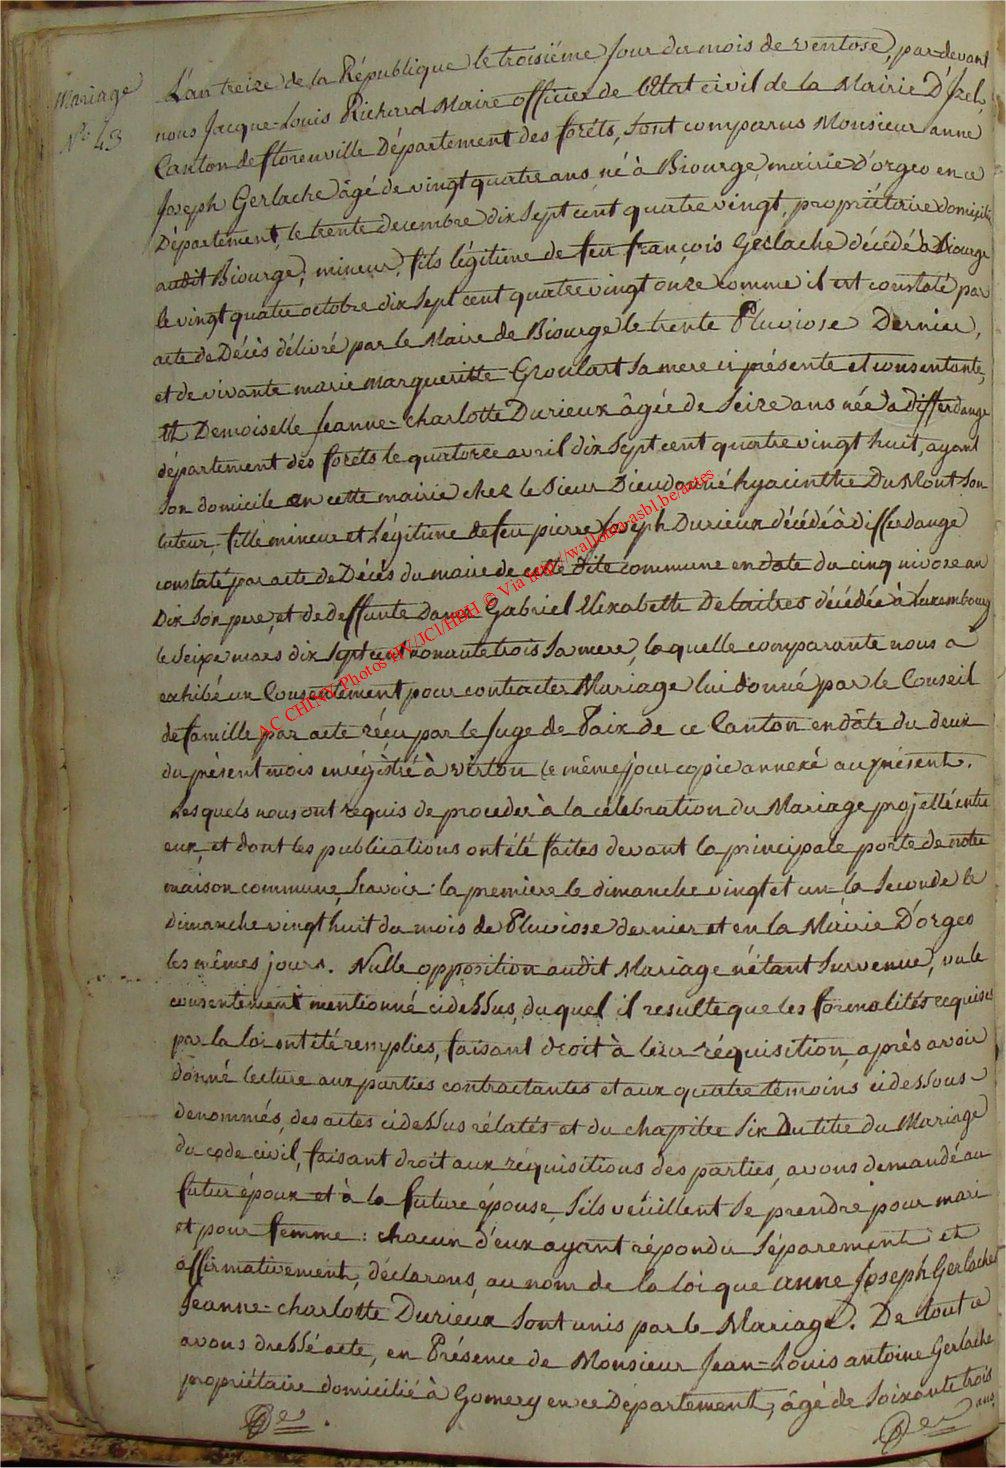 Mariage
N.º 43
L'an treize de la République le troisiéme Jour du mois de ventose, par-devant
nous Jacque-Louis Richard Maire officier de l'Etat civil de la Mairie D'Izel,
Canton de florenville Département des foréts, sont comparus Monsieur anne
Joseph Gerlache âgé de vingt quatre ans, né à Biourge, mairie D'orgeo en ce
Département, le trente decembre dix sept cent quatre vingt, propriétaire domicilié
audit Biourge, mineur, fils légitime de feu françois Gerlache décédé à Biourge
le vingt quatre octobre dix sept cent quatre vingt onze comme il est constaté par
acte de Décès délivré par le Maire de Biourge le trente Pluviose Dernier,
et de vivante marie margueritte Groulart Sa mere ci présente et consentante,
Et Demoiselle Jeanne-charlotte Durieux âgée de Seize ans née à Differdange
département des foréts le quatorze avril dix Sept cent quatre vingt huit, ayant
Son domicile en cette mairie chez le Sieur Dieudonné hyacinthe DuMont Son
tuteur, fille mineur et Légitime de feu pierre Joseph Durieux décédé à Differdange
constaté par acte de Décès du maire de cette dite commune en date du cinq nivose an
Dix Son pere, et de deffunte dame Gabriel Elizabette Delaitres décédée à Luxembourg
le Seize mars dix Sept cent nonante trois Sa mere, laquelle comparante nous a
exhibé un Consentement pour contracter Mariage lui donné par le Conseil
de famille par acte réçu par le Juge de Paix de ce Canton en dâte du deux
du présent mois enrégistré à Virton le même jour copie annexé au présent.
Lesquels nous ont requis de proceder à la célébration du Mariage projetté entre
eux, et dont les publications ont été faites devant la principale porte de notre
maison commune, Scavoir: la premiere le dimanche vingt et un, la Seconde le
dimanche vingt huit du mois de Pluviose dernier et en la Mairie D'orgeo
les mêmes jours. Nulle opposition audit Mariage n'étant Survenue, vu le
consentement mentionné cidessus, duquel il resulte que les formalités requises
par la loi ont été remplies, faisant droit à leur réquisition, après avoir
donné lecture aux parties contractantes et aux quatre témoins cidessous
denommés, des actes cidessus rélatés et du chapitre Six Du titre du Mariage
du code civil, faisant droit aux réquisitions des parties, avons demandé au
futur époux et à la future épouse, S'ils véuillent Se prendre pour mari
et pour femme: chacun d'eux ayant répondu Séparement et
affirmativement, déclarons, au nom de la loi que anne Joseph Gerlache et
Jeanne-charlotte Durieux Sont unis par le Mariage. De tout ce
avons dressé acte, en Présence de Monsieur Jean-Louis antoine Gerlache
propriétaire domicilié à Gomery en ce Département, âgé de Soixante trois
ans
AC CHINY Photos HV/JCl/HBH © Via http://wallonia-asbl.be/actes